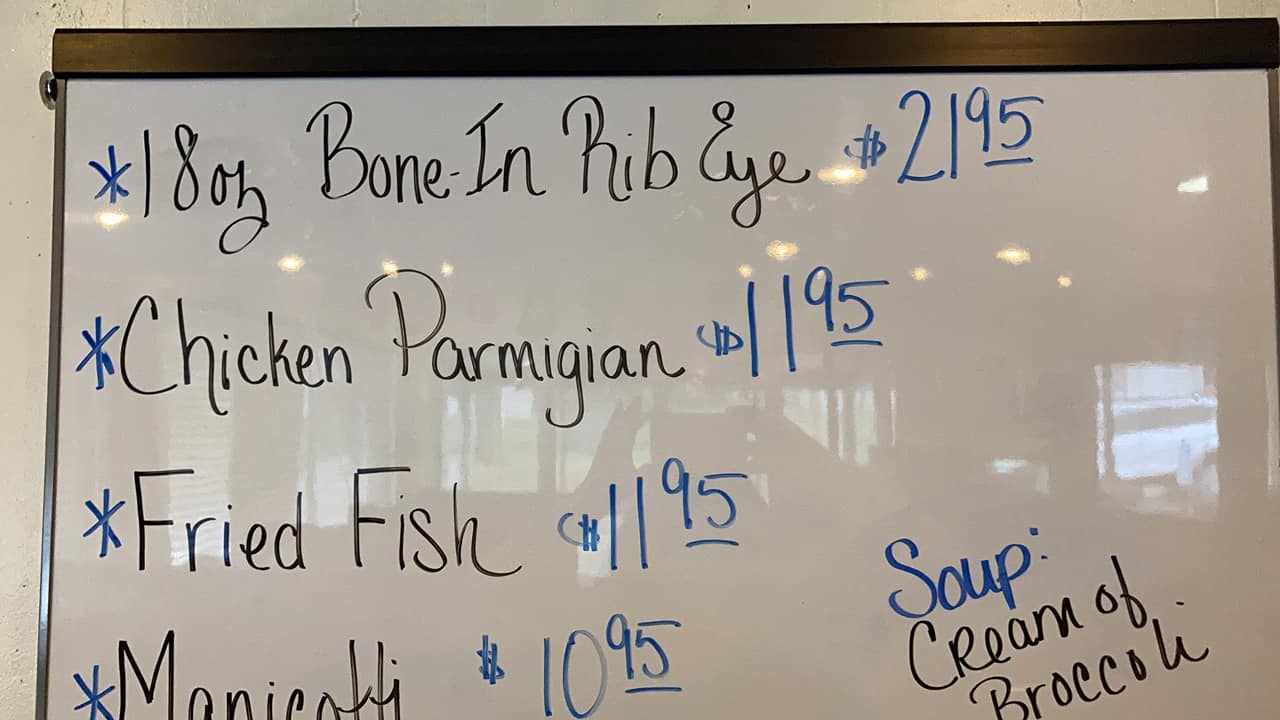 *18oz Bone-In Rib Eye $21 95
*Chicken Parmigian $11 95
*Fried Fish $11 95
*Manicotti $10 95
Soup:
Cream of
Broccoli